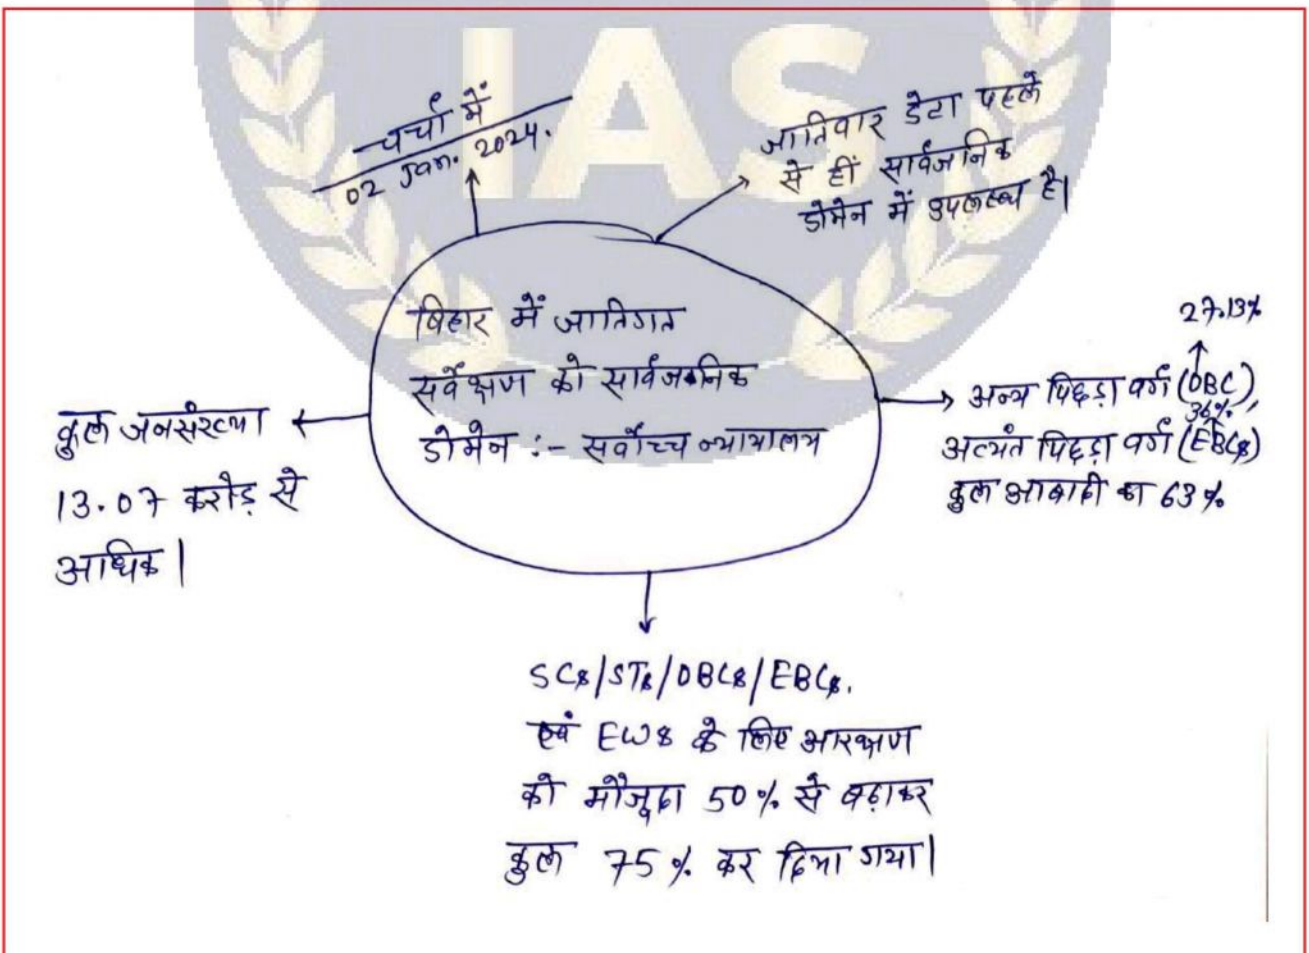 IAS
चर्चा में
02 Jan. 2024.
जातिवार डेटा पहले
से हीं सार्वजनिक
डोमेन में उपलब्ध है।
बिहार में जातिगत
सर्वेक्षण को सार्वजनिक
डोमेन :- सर्वोच्च न्यायालय
27.13%
अन्य पिछड़ा वर्ग (OBC),
36%,
अत्यंत पिछड़ा वर्ग (EBCs)
कुल आबादी का 63%
कुल जनसंख्या
13.07 करोड़ से
अधिक।
SCs/STs/OBCs/EBCs.
एवं EWS के लिए आरक्षण
को मौजूदा 50% से बढ़ाकर
कुल 75% कर दिया गया।